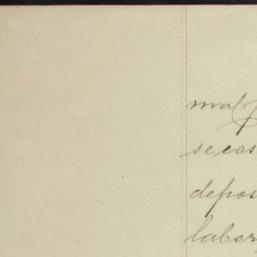 mal
secos
depos
labor